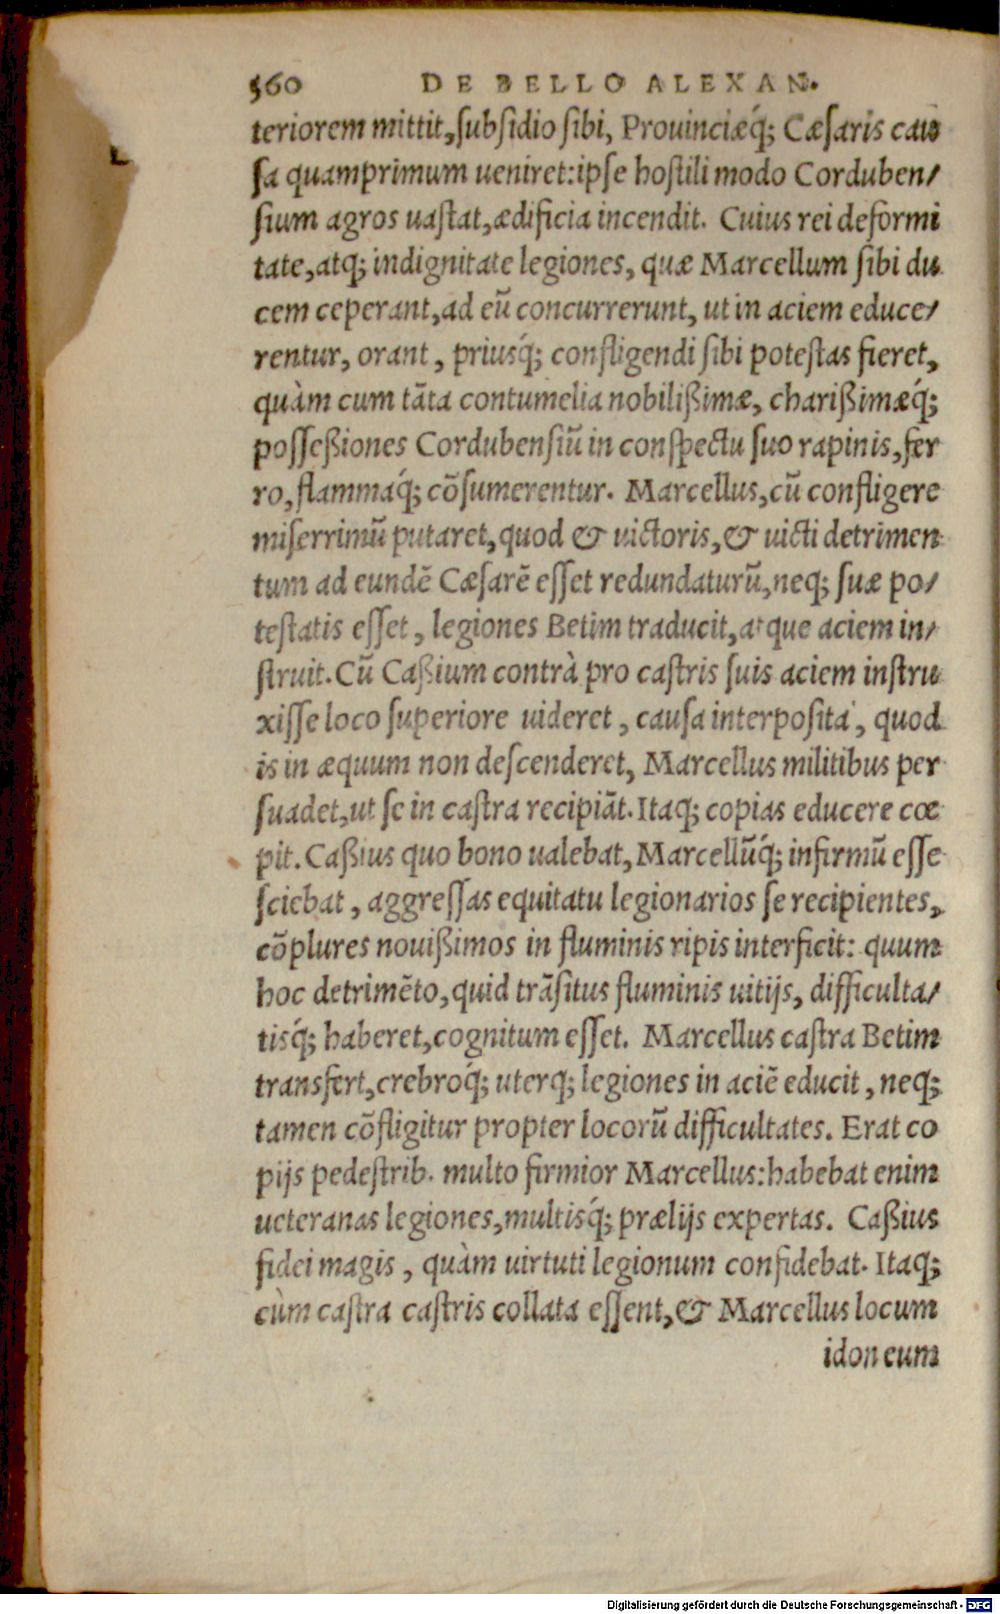 560 DE BELLO ALEXAN.
teriorem mittit, ſubſidio ſibi, Prouinciæq́; Cæſaris cau
ſa quamprimum ueniret: ipſe hoſtili modo Corduben/
ſium agros uaſtat, ædificia incendit. Cuius rei deformi
tate, atq; indignitate legiones, quæ Marcellum ſibi du
cem ceperant, ad eū concurrerunt, ut in aciem educe/
rentur, orant, priusq́; confligendi ſibi poteſtas fieret,
quàm cum tāta contumelia nobilißimæ, charißimæq́;
poſſeßiones Cordubenſiū in conſpectu ſuo rapinis, fer
ro, flammaq́; cōſumerentur. Marcellus, cū confligere
miſerrimū putaret, quod & uictoris, & uicti detrimen
tum ad eundē Cæſarē eſſet redundaturū, neq; ſuæ po/
teſtatis eſſet, legiones Betim traducit, atque aciem in/
ſtruit. Cū Caßium contrà pro caſtris ſuis aciem inſtru
xiſſe loco ſuperiore uideret, cauſa interpoſita, quod
is in æquum non deſcenderet, Marcellus militibus per
ſuadet, ut ſe in caſtra recipiāt. Itaq; copias educere cœ
pit. Caßius quo bono ualebat, Marcellūq́; infirmū eſſe
ſciebat, aggreſſas equitatu legionarios ſe recipientes,
cōplures nouißimos in fluminis ripis interficit: quum
hoc detrimēto, quid trāſitus fluminis uitijs, difficulta/
tisq́; haberet, cognitum eſſet. Marcellus caſtra Betim
transfert, crebroq́; uterq; legiones in aciē educit, neq;
tamen cōfligitur propter locorū difficultates. Erat co
pijs pedeſtrib. multo firmior Marcellus: habebat enim
ueteranas legiones, multisq́; prælijs expertas. Caßius
fidei magis, quàm uirtuti legionum confidebat. Itaq;
cùm caſtra caſtris collata eſſent, & Marcellus locum
idoneum
Digitalisierung gefördert durch die Deutsche Forschungsgemeinschaft - DFG